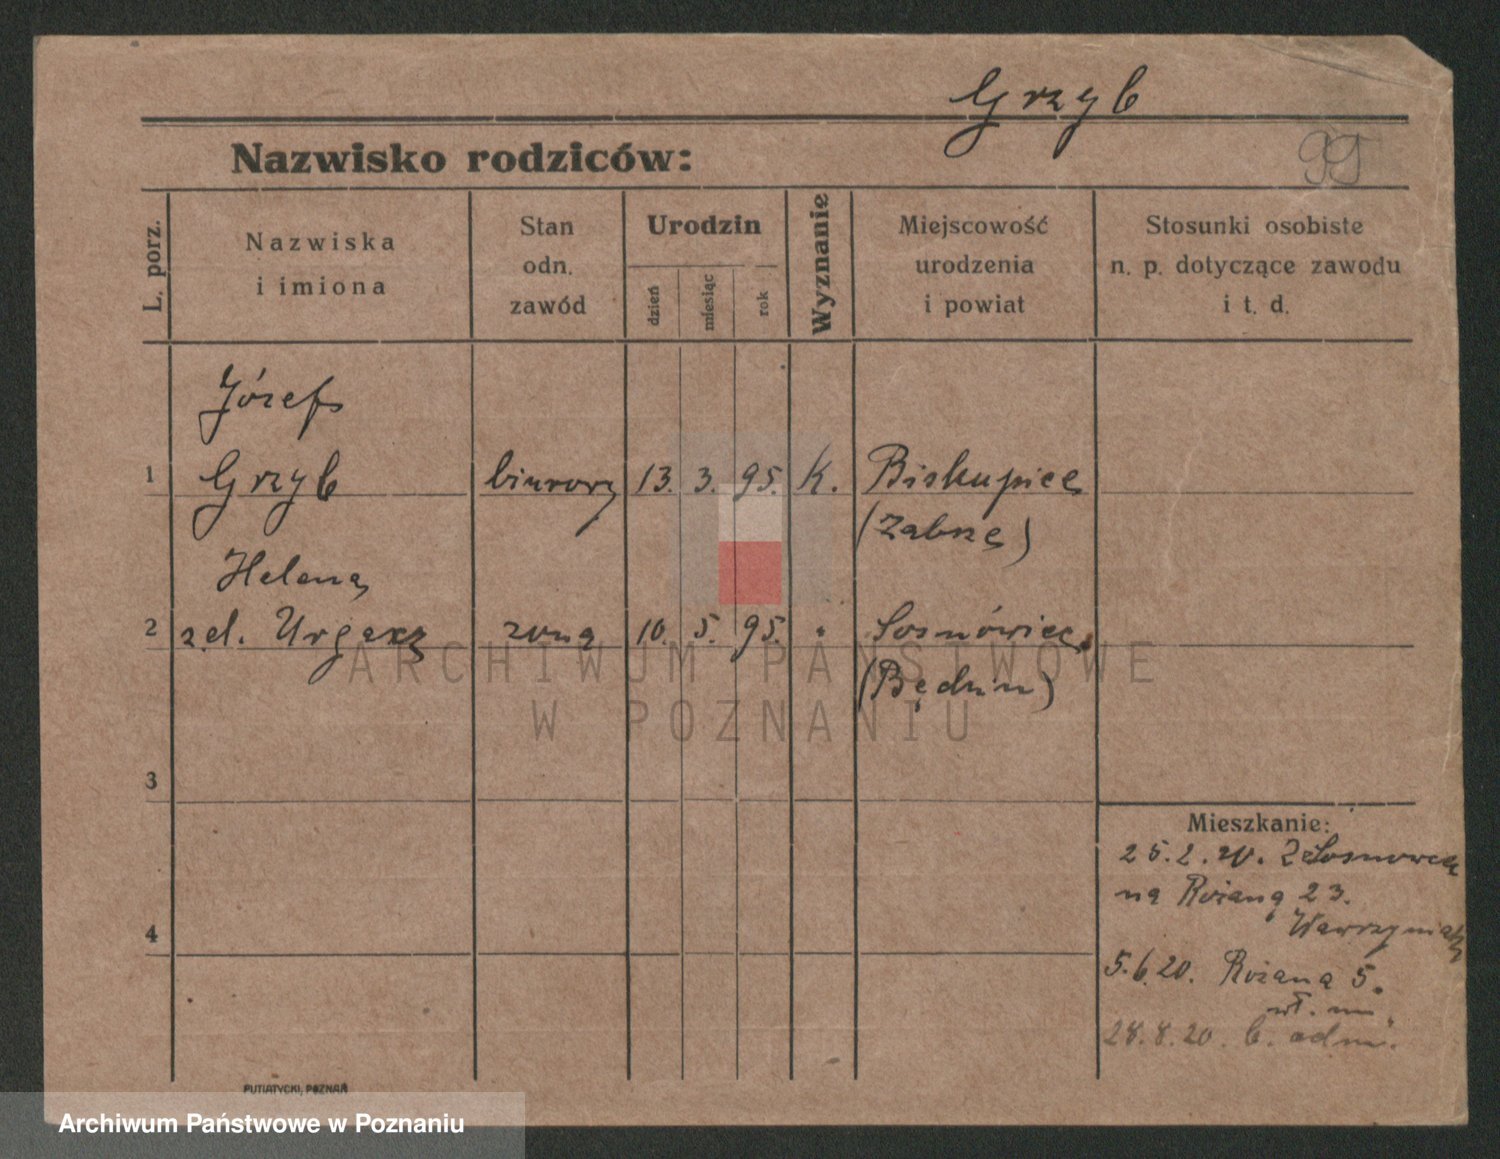 Grzyb
Nazwisko rodziców:
99
L. porz.
Nazwiska
i imiona
Stan
odn.
zawód
Urodzin
dzień
miesiąc
rok
Wyznanie
Miejscowość
urodzenia
i powiat
Stosunki osobiste
n. p. dotyczące zawodu
i t. d.
Józef
1 Grzyb biurowy 13. 3. 95. K. Biskupice
(Zabrze)
Helena
2 zd. 10. 5. 95. " Sosnówiec
(Będzin)
ARCHIWUM PAŃSTWOWE
W POZNANIU
3
Mieszkanie:
25.2.20. Z Sosnowca
na Rożaną 23.
4
5.6.20. Rożana 5.
28.8.20. b. adm.
PUTIATYCKI, POZNAŃ
Archiwum Państwowe w Poznaniu